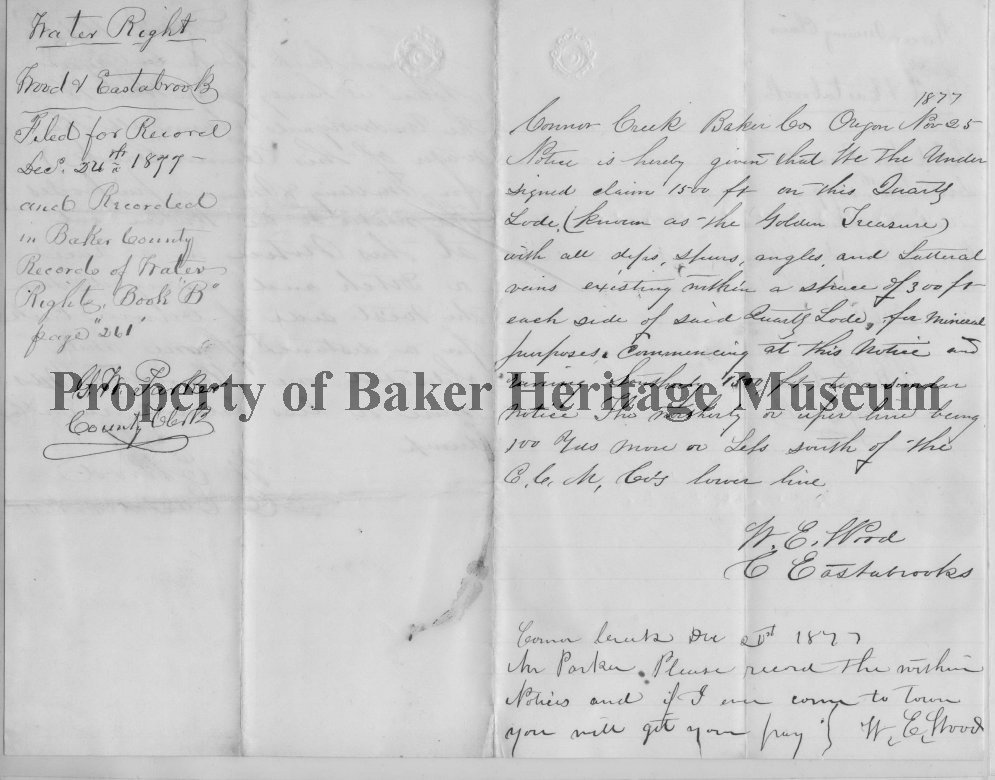 Water Right
Wood & Eastabrook
Filed for Record
Dec. 24th 1877
and Recorded
in Baker County
Records of Water
Right, Book "B"
page "261"
Parker
County Clerk
1877
Connor Creek Baker Co Oregon Nov 25
Notice is hereby given that We the Under
signed claim 1500 ft on this Quartz
Lode, (known as the Golden Treasure)
with all dips, spurs, angles, and Latteral
vains existing within a space of 300 ft
each side of said Quartz Lode, for mineral
purposes. Commencing at this Notice and
runing to a similar
notice The northerly or uper line being
100 Yds more or Less south of the
C. C. M, Co's lower line
W. E. Wood
C Eastabrooks
Connor Creek Dec 21st 1877
Mr Parker Please record the within
Notices and if I ever come to town
you will get your pay } W, E, Wood
Property of Baker Heritage Museum